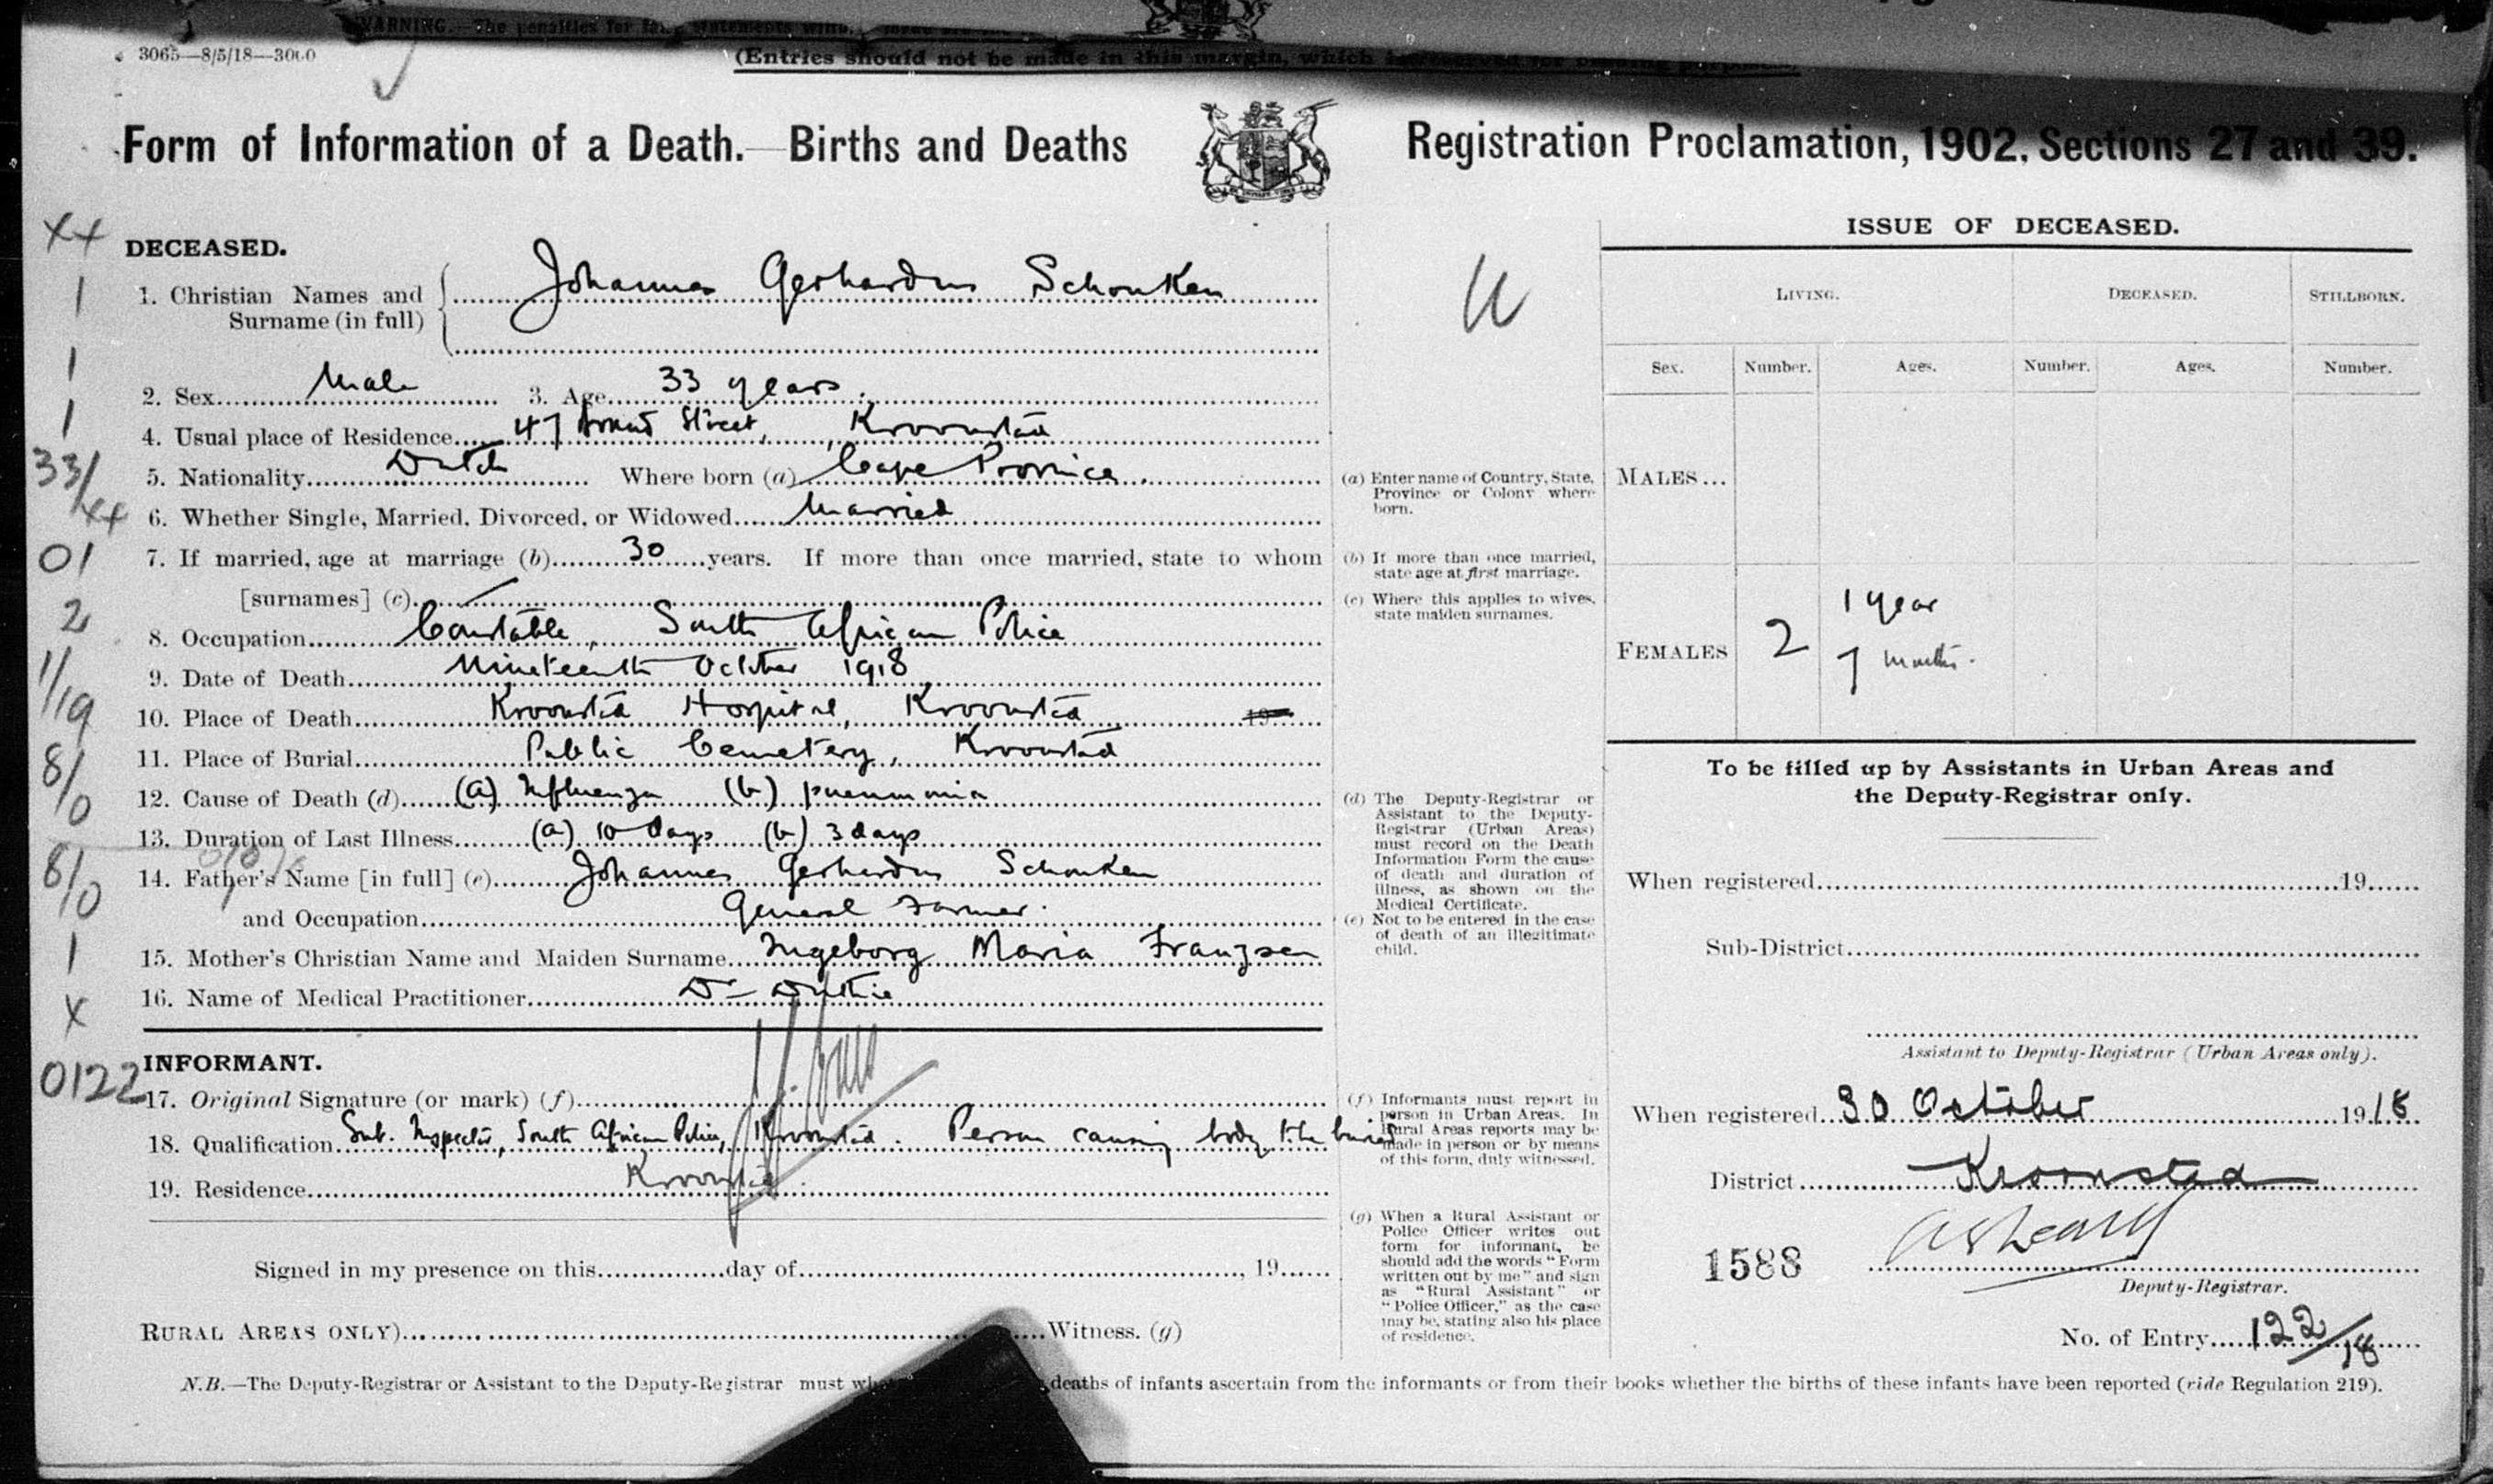 WARNING.—The penalties for
3065—8/5/18—3000
(Entries should not be made in this margin, which is reserved for binding purposes.
Form of Information of a Death.—Births and Deaths Registration Proclamation, 1902, Sections 27 and 39.
XX
DECEASED.
1
1. Christian Names and Surname (in full) Johannes Gerhardus Schonken
1
2. Sex Male 3. Age 33 years.
1
4. Usual place of Residence 47 Street, Kroonstad
33/XX
5. Nationality Dutch Where born (a) Cape Province
6. Whether Single, Married, Divorced, or Widowed Married
01
7. If married, age at marriage (b) 30 years. If more than once married, state to whom
[surnames] (c)
2
8. Occupation Constable, South African Police
9. Date of Death Nineteenth October 1918
1/19
10. Place of Death Kroonstad Hospital, Kroonstad 19
11. Place of Burial Public Cemetery, Kroonstad
8/0
12. Cause of Death (d) (a) Influenza (b) pneumonia
13. Duration of Last Illness (a) 10 days (b) 3 days
8/0
14. Father's Name [in full] (e) Johannes Gerhardus Schonken
and Occupation General Farmer.
1
15. Mother's Christian Name and Maiden Surname Ingeborg Maria Franzsen
16. Name of Medical Practitioner Dr Duthie
X
INFORMANT.
0122
17. Original Signature (or mark) (f)
18. Qualification Sub. Inspector, South African Police, Kroonstad. Person causing body to be buried
19. Residence Kroonstad.
Signed in my presence on this day of , 19
RURAL AREAS ONLY) Witness. (g)
(a) Enter name of Country, State,
Province or Colony where
born.
(b) If more than once married,
state age at first marriage.
(c) Where this applies to wives,
state maiden surnames.
(d) The Deputy-Registrar or
Assistant to the Deputy-
Registrar (Urban Areas)
must record on the Death
Information Form the cause
of death and duration of
illness, as shown on the
Medical Certificate.
(e) Not to be entered in the case
of death of an illegitimate
child.
(f) Informants must report in
person in Urban Areas. In
Rural Areas reports may be
made in person or by means
of this form, duly witnessed.
(g) When a Rural Assistant or
Police Officer writes out
form for informant, he
should add the words "Form
written out by me" and sign
as "Rural Assistant" or
"Police Officer," as the case
may be, stating also his place
of residence.
ISSUE OF DECEASED.
LIVING. DECEASED. STILLBORN.
Sex. Number. Ages. Number. Ages. Number.
MALES...
FEMALES 2 1 year
7 months.
To be filled up by Assistants in Urban Areas and
the Deputy-Registrar only.
When registered 19
Sub-District
Assistant to Deputy-Registrar (Urban Areas only).
When registered 30 October 1918
District Kroonstad
1588
Deputy-Registrar.
No. of Entry 122/18
N.B.—The Deputy-Registrar or Assistant to the Deputy-Registrar must deaths of infants ascertain from the informants or from their books whether the births of these infants have been reported (vide Regulation 219).